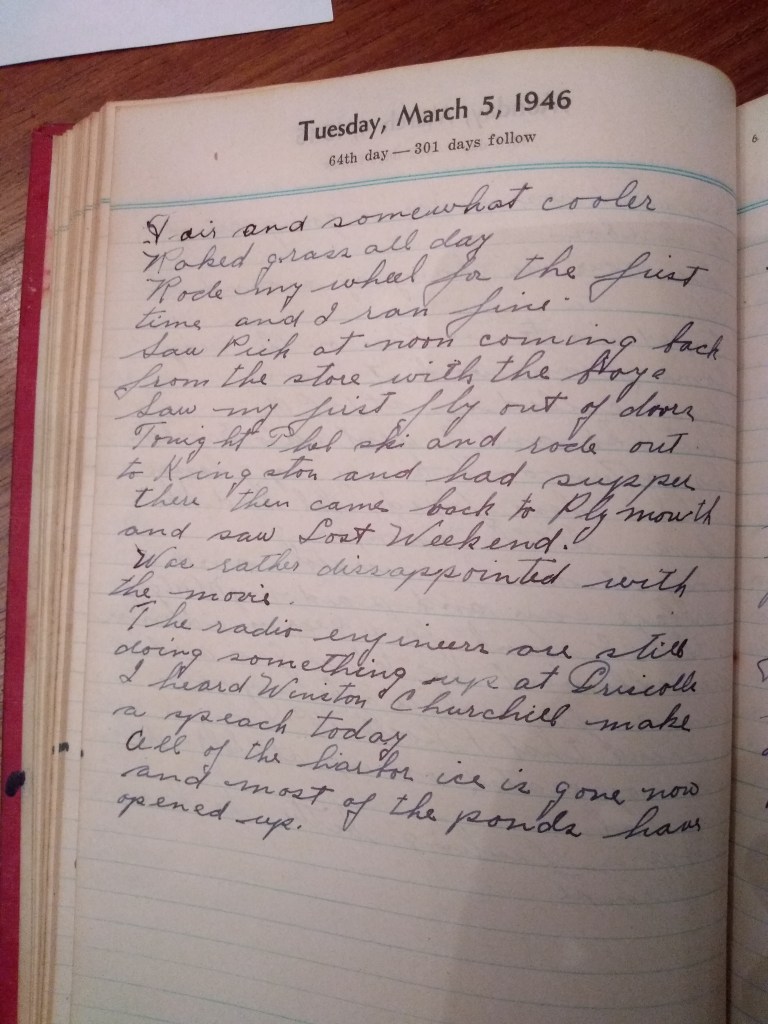 Tuesday, March 5, 1946
64th day — 301 days follow
Fair and somewhat cooler
Raked grass all day
Rode my wheel for the first
time and I ran fine.
Saw Pick at noon coming back
from the store with the boys
Saw my first fly out of doors
Tonight Phel ski and rode out
to Kingston and had supper
there then came back to Plymouth
and saw Lost Weekend.
Was rather dissappointed with
the movie.
The radio engineers are still
doing something up at Driscolls
I heard Winston Churchill make
a speach today
All of the harbor ice is gone now
and most of the ponds have
opened up.
6